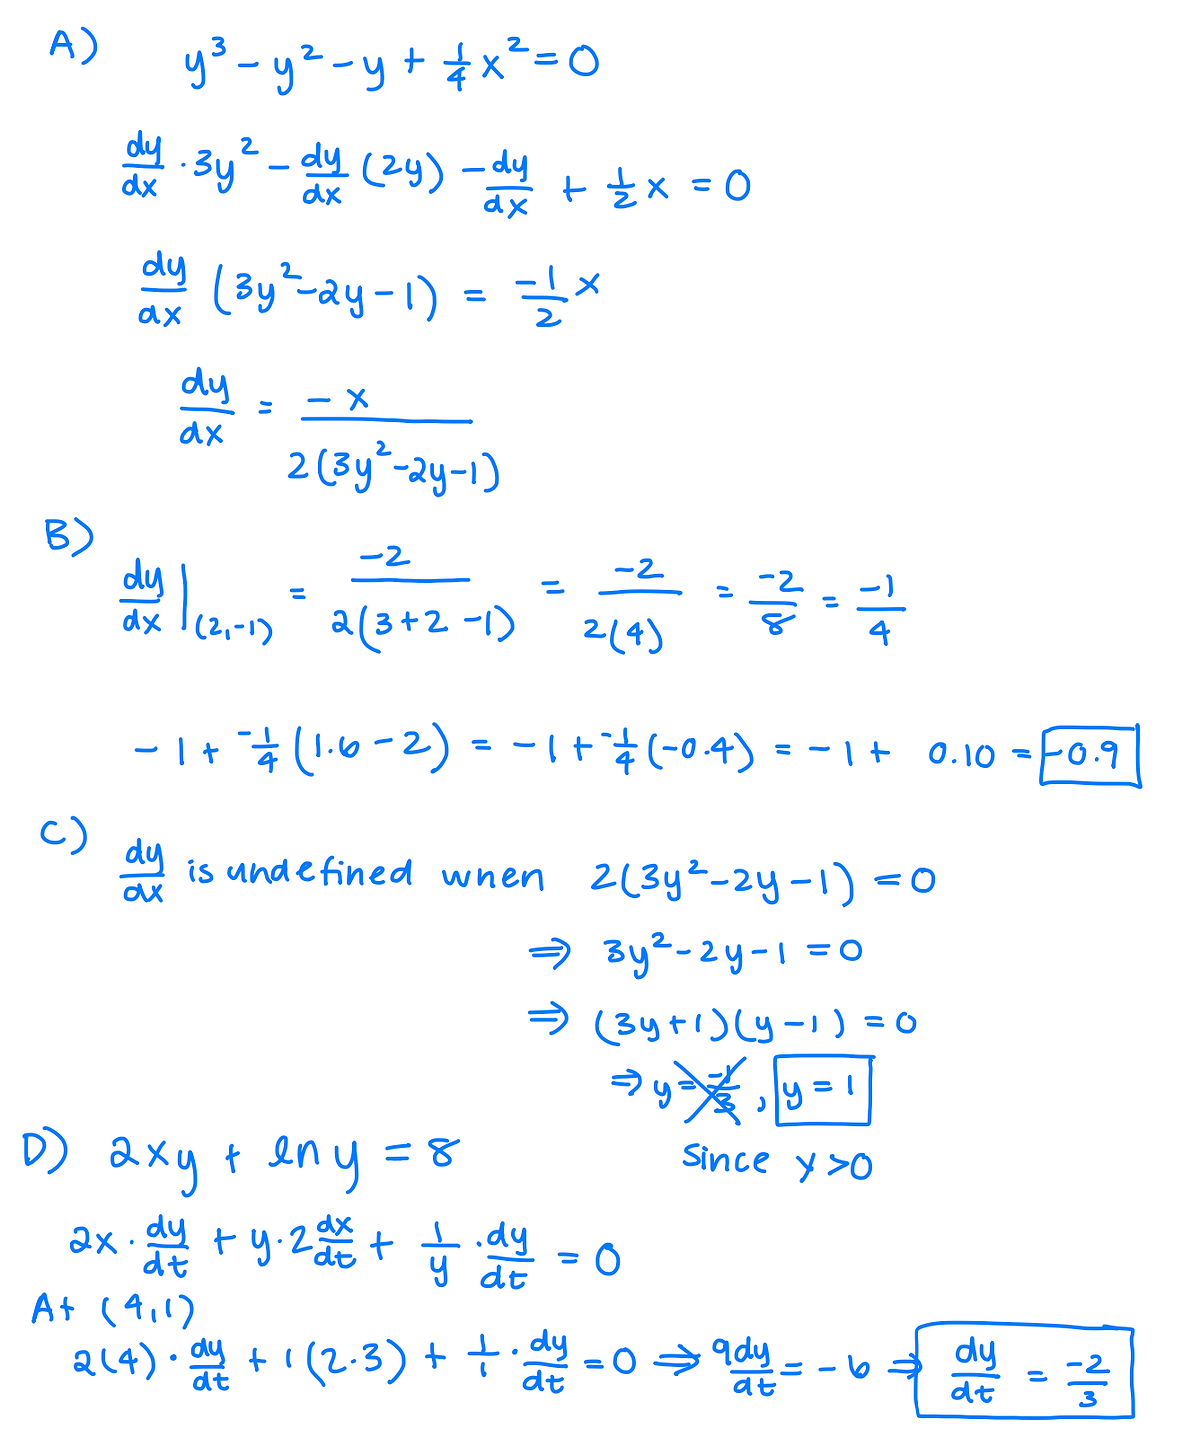 A) y³ - y² - y + 1/4 x² = 0
dy/dx · 3y² - dy/dx (2y) - dy/dx + 1/2 x = 0
dy/dx (3y² - 2y - 1) = -1/2 x
dy/dx = -x / 2(3y² - 2y - 1)
B) dy/dx |(2,-1) = -2 / 2(3+2-1) = -2 / 2(4) = -2/8 = -1/4
-1 + -1/4 (1.6 - 2) = -1 + -1/4 (-0.4) = -1 + 0.10 = -0.9
C) dy/dx is undefined when 2(3y² - 2y - 1) = 0
⇒ 3y² - 2y - 1 = 0
⇒ (3y+1)(y-1) = 0
⇒ y = -1/3, y = 1
since y > 0
D) 2xy + ln y = 8
2x · dy/dt + y · 2 dx/dt + 1/y · dy/dt = 0
At (4,1)
2(4) · dy/dt + 1(2·3) + 1/1 · dy/dt = 0 ⇒ 9dy/dt = -6 ⇒ dy/dt = -2/3